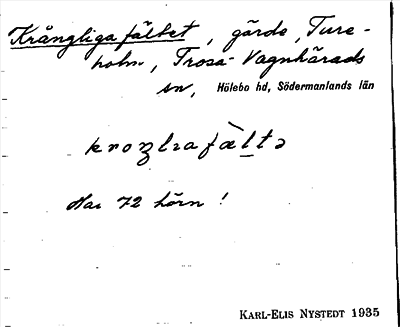 Krångliga fältet, gärde, Ture-
holm, Trosa-Vagnhärads
sn, Hölebo hd, Södermanlands län
Har 72 hörn!
KARL-ELIS NYSTEDT 1935